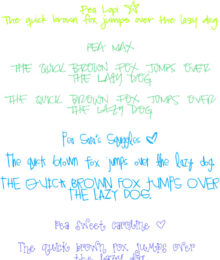 Pea Lap
The quick brown fox jumps over the lazy dog
PEA MAX
THE QUICK BROWN FOX JUMPS OVER
THE LAZY DOG.
THE QUICK BROWN FOX JUMPS OVER
THE LAZY DOG
Pea Sara's Squiggles
The quick brown fox jumps over the lazy dog.
THE QUICK BROWN FOX JUMPS OVER
THE LAZY DOG.
Pea Sweet Caroline
The quick brown fox jumps over
the lazy dog